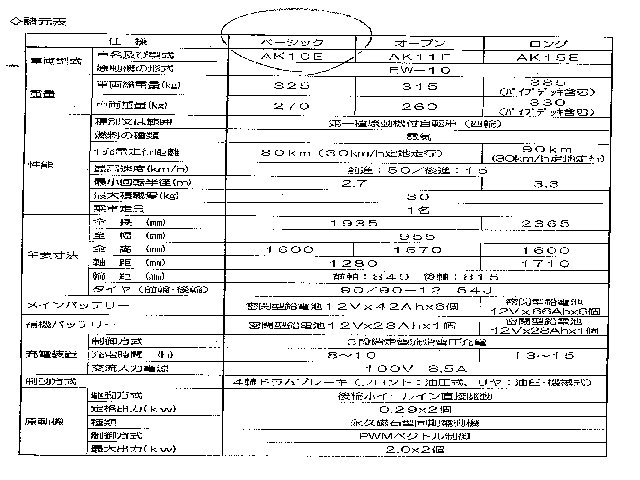 ◇諸元表
仕様 ベーシック オープン ロング
車両型式 車名及び型式 AK10E AK11F AK15E
原動機の形式 EW-10
重量 車両総重量(kg) 325 315 385 (パイプデッキ含む)
車両重量(kg) 270 260 330 (パイプデッキ含む)
種別又は車種 第一種原動機付自転車 (四輪)
性能 燃料の種類 電気
1充電走行距離 80km (30km/h定地走行) 90km (30km/h定地走行)
最高速度(km/h) 前進:50/後進:15
最小回転半径(m) 2.7 3.3
最大積載量(kg) 30
乗車定員 1名
主要寸法 全長 (mm) 1935 2365
全幅 (mm) 955
全高 (mm) 1600 1570 1600
軸距 (mm) 1280 1710
輪距 (mm) 前軸:840 後軸:815
タイヤ (前輪・後輪) 80/90-12 54J
メインバッテリー 密閉型鉛電池12V×42Ah×6個 密閉型鉛電池 12V×66Ah×6個
補機バッテリー 密閉型鉛電池12V×28Ah×1個 密閉型鉛電池 12V×28Ah×1個
充電装置 制御方式
充電時間 (h) 8~10 13~15
交流入力電源 100V 8.5A
制動方式 4輪ドラムブレーキ (フロント:油圧式、リヤ:油圧・機械式)
原動機 駆動方式 後輪ホイールイン直接駆動
定格出力(kw) 0.29×2個
種類 永久磁石型同期電動機
制御方式 PWMベクトル制御
最大出力(kw) 2.0×2個